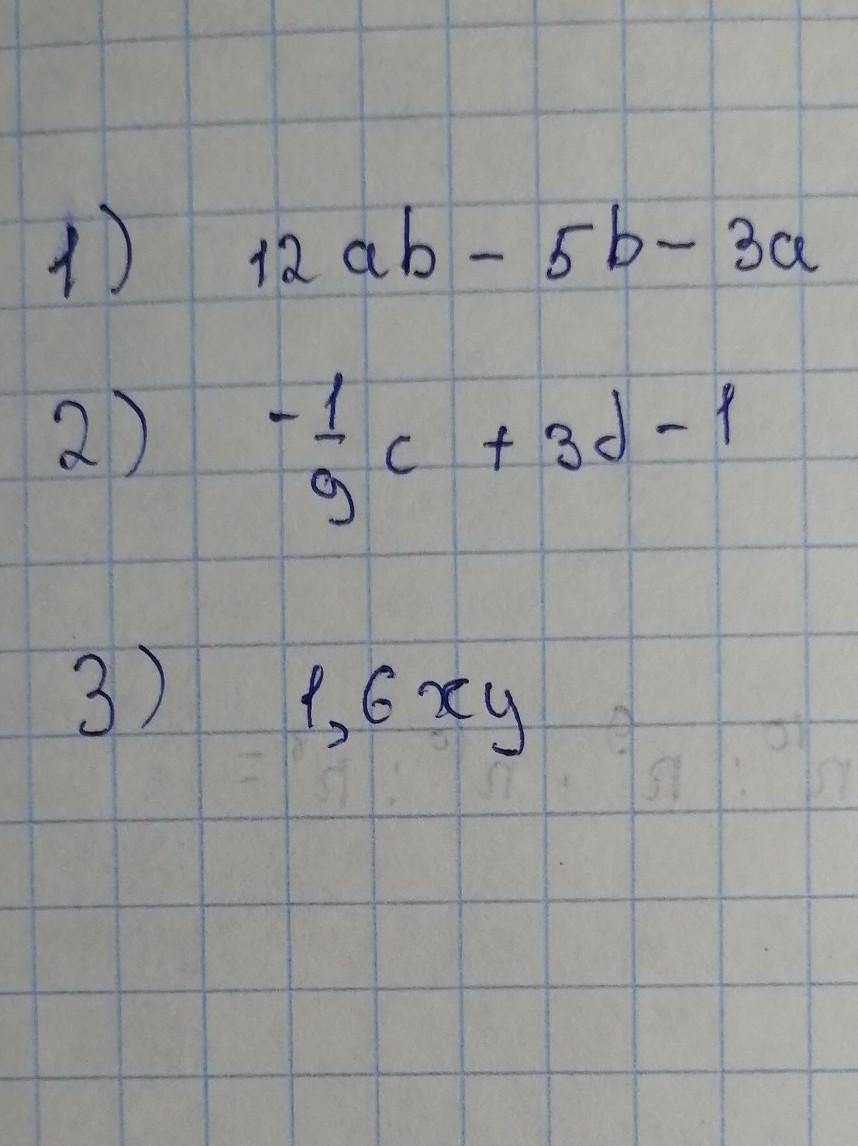 1) 12ab - 5b - 3a
2) -1/9 c + 3d - 1
3) 1,6xy